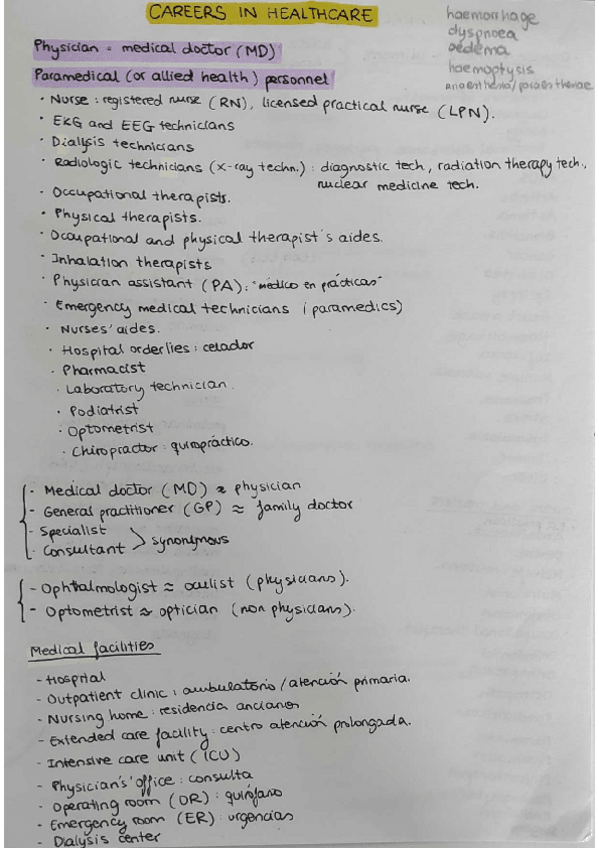 CAREERS IN HEALTHCARE
haemorrhage
dyspnoea
oedema
haemoptysis
anaesthesia/paraesthesiae
Physician = medical doctor (MD)
Paramedical (or allied health) personnel
· Nurse : registered nurse (RN), licensed practical nurse (LPN).
· EKG and EEG technicians
· Dialysis technicians
· Radiologic technicians (x-ray techn.) : diagnostic tech, radiation therapy tech.,
nuclear medicine tech.
· Occupational therapists.
· Physical therapists.
· Occupational and physical therapist's aides.
· Inhalation therapists
· Physician assistant (PA): "médico en prácticas"
· Emergency medical technicians (paramedics)
· Nurses' aides.
· Hospital orderlies : celador
· Pharmacist
· Laboratory technician.
· Podiatrist
· Optometrist
· Chiropractor : quiropráctico.
- Medical doctor (MD) ≈ physician
- General practitioner (GP) ≈ family doctor
- Specialist
- Consultant > synonymous
- Ophtalmologist ≈ oculist (physicians).
- Optometrist ≈ optician (non physicians).
Medical facilities
- Hospital
- Outpatient clinic : ambulatorio / atención primaria.
- Nursing home : residencia ancianos
- Extended care facility : centro atención prolongada.
- Intensive care unit (ICU)
- Physician's' office : consulta
- Operating room (OR) : quirófano
- Emergency room (ER) : urgencias
- Dialysis center